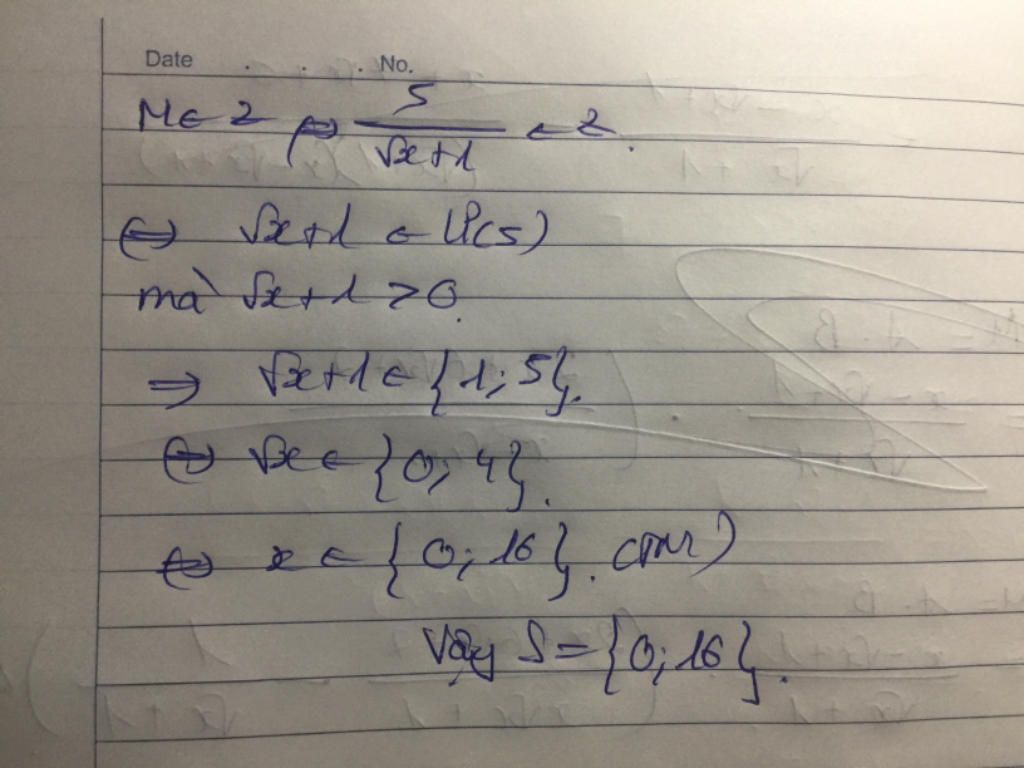 Date . . . No.
M ∈ Z ⇔ 5/(√x+1) ∈ Z.
⇔ √x+1 ∈ Ư(5)
mà √x+1 > 0.
⇒ √x+1 ∈ {1; 5}.
⇔ √x ∈ {0; 4}.
⇔ x ∈ {0; 16}. (TM)
Vậy S = {0; 16}.